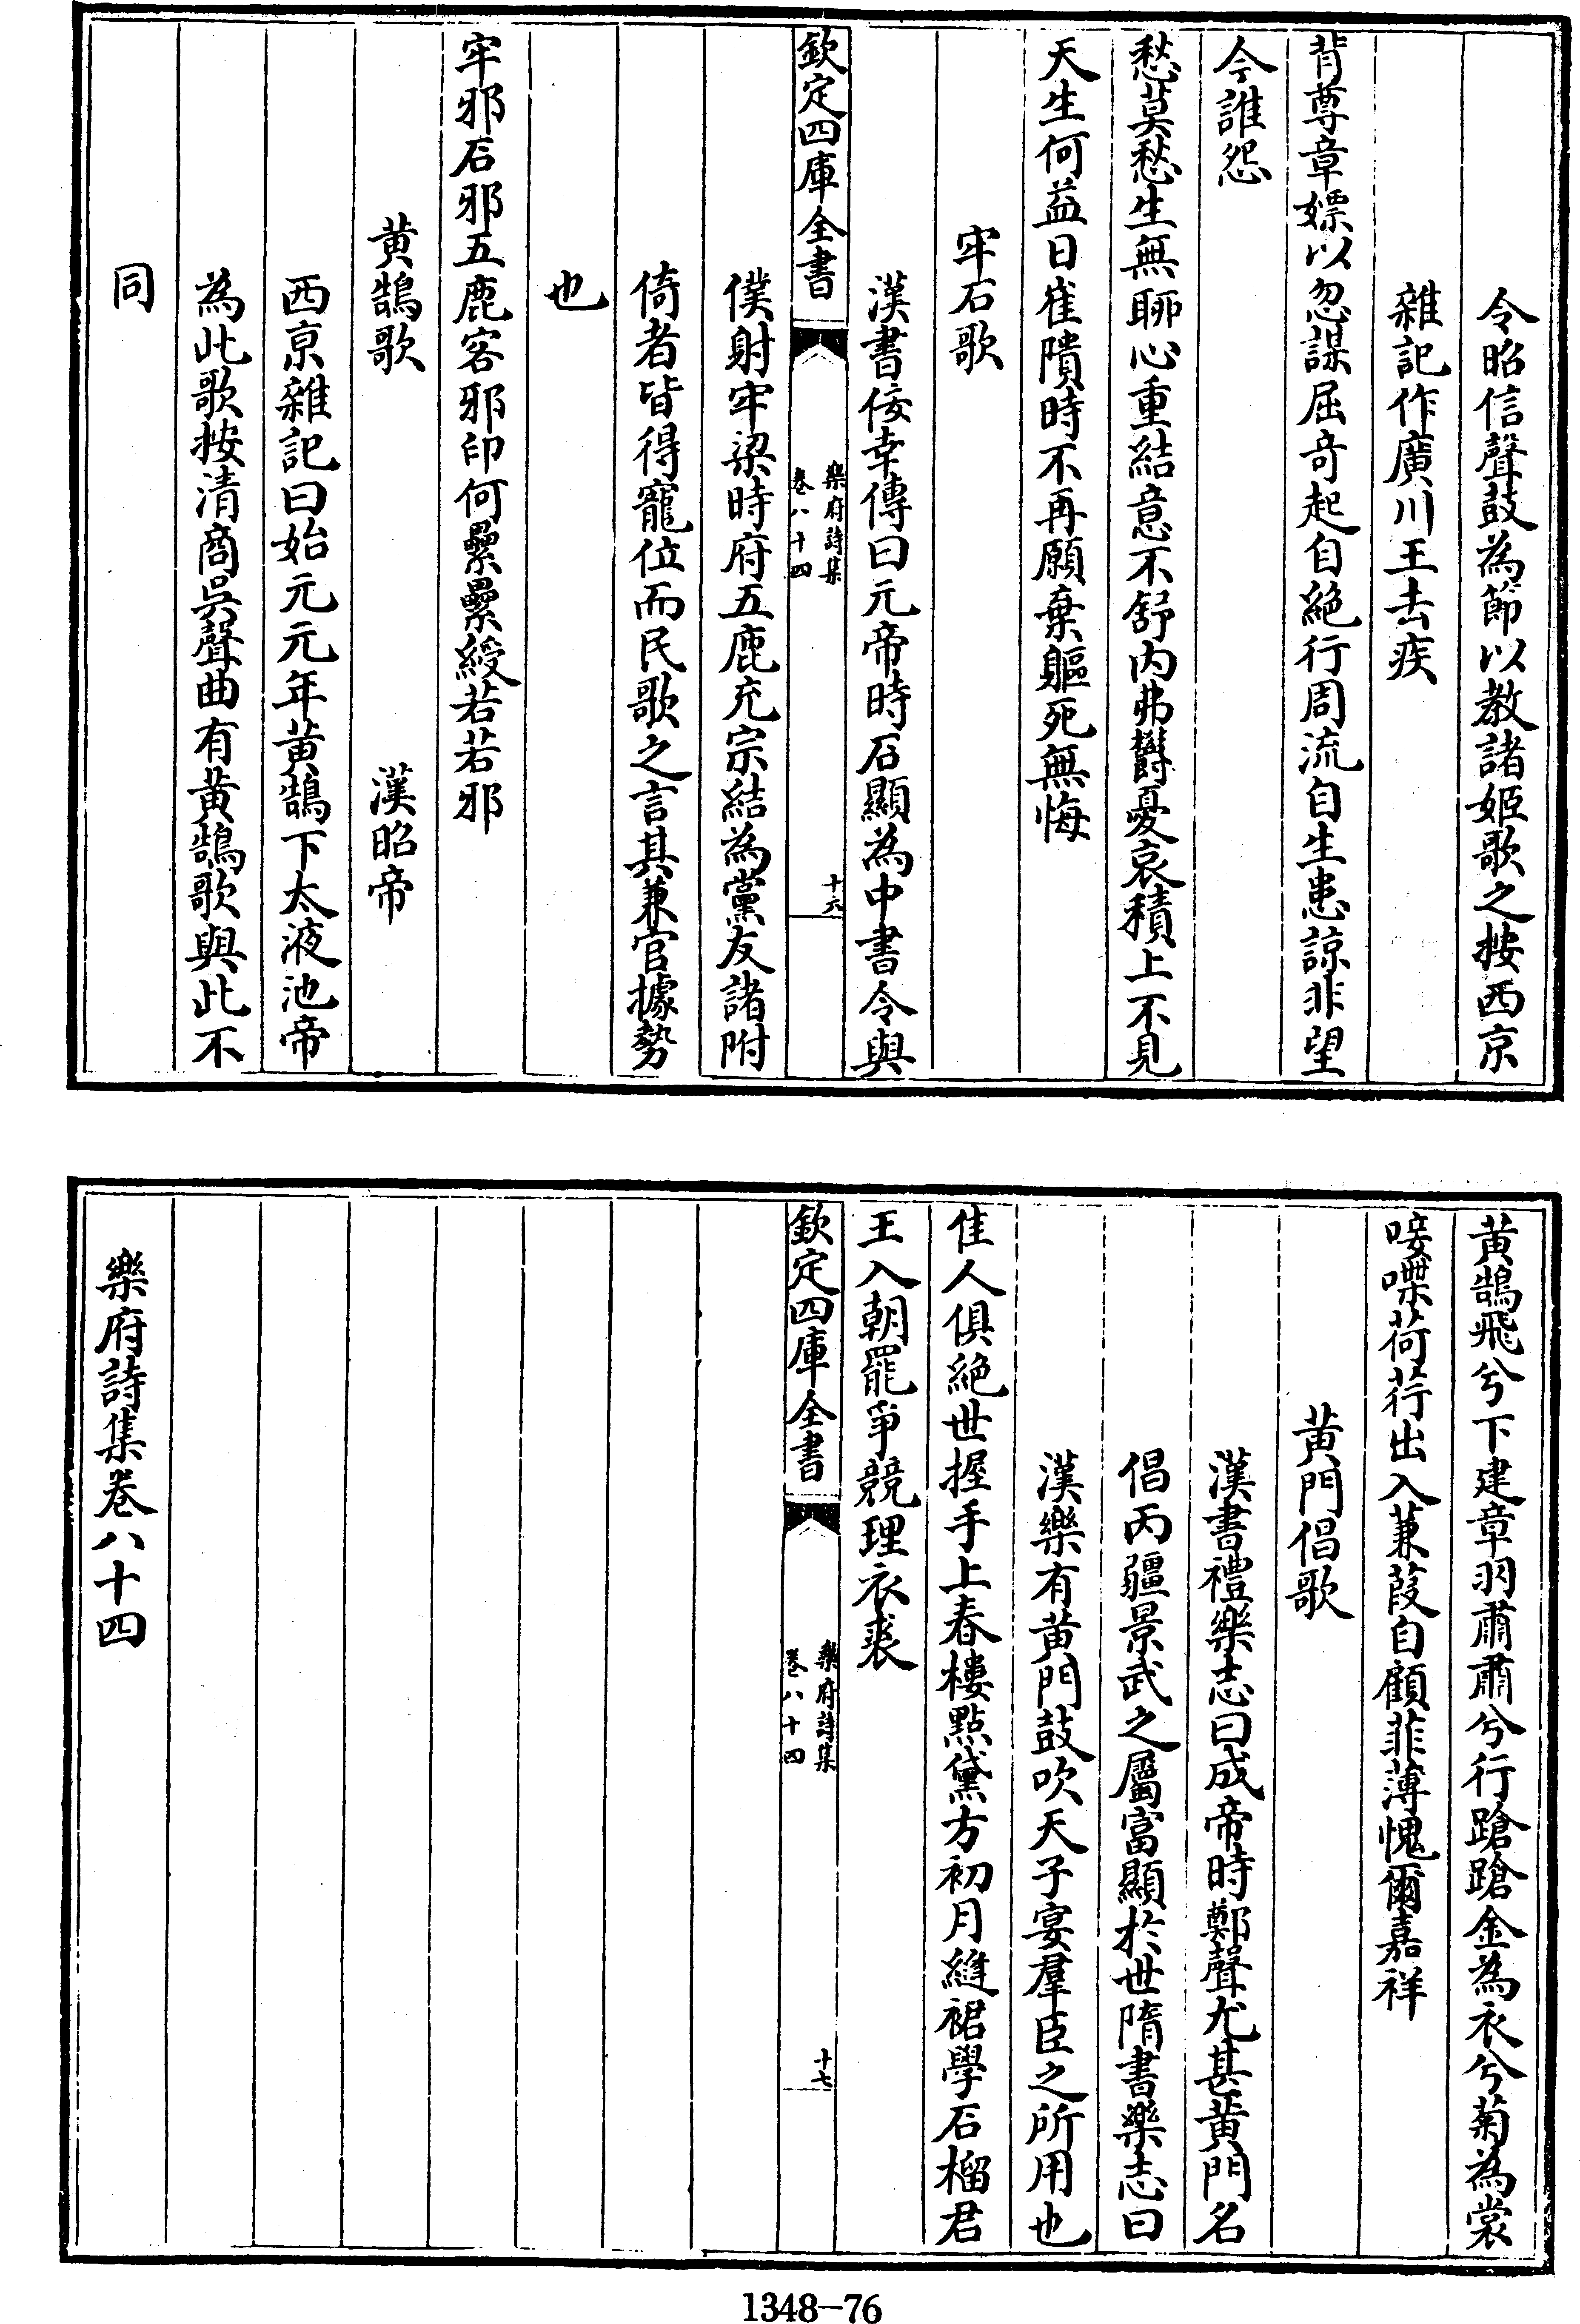 令昭信聲鼓為節以教諸姬歌之按西京
雜記作廣川王去疾
背尊章嫖以忽謀屈奇起自絶行周流自生患諒非望
今誰怨
愁莫愁生無聊心重結意不舒内弗鬱憂哀積上不見
天生何益日崔隤時不再願棄軀死無悔
牢石歌
漢書佞幸傳曰元帝時石顯為中書令與
欽定四庫全書
樂府詩集
卷八十四
十六
僕射牢梁時府五鹿充宗結為黨友諸附
倚者皆得寵位而民歌之言其兼官據勢
也
牢邪石邪五鹿客邪印何纍纍綬若若邪
黄鵠歌 漢昭帝
西京雜記曰始元元年黄鵠下太液池帝
為此歌按清商吳聲曲有黄鵠歌與此不
同
黄鵠飛兮下建章羽肅肅兮行蹌蹌金為衣兮菊為裳
唼喋荷荇出入蒹葭自顧菲薄愧爾嘉祥
黄門倡歌
漢書禮樂志曰成帝時鄭聲尤甚黄門名
倡丙疆景武之屬富顯於世隋書樂志曰
漢樂有黄門鼓吹天子宴羣臣之所用也
佳人俱絶世握手上春樓點黛方初月縫裙學石榴君
王入朝罷爭競理衣裘
欽定四庫全書
樂府詩集
卷八十四
十七
樂府詩集卷八十四
1348—76